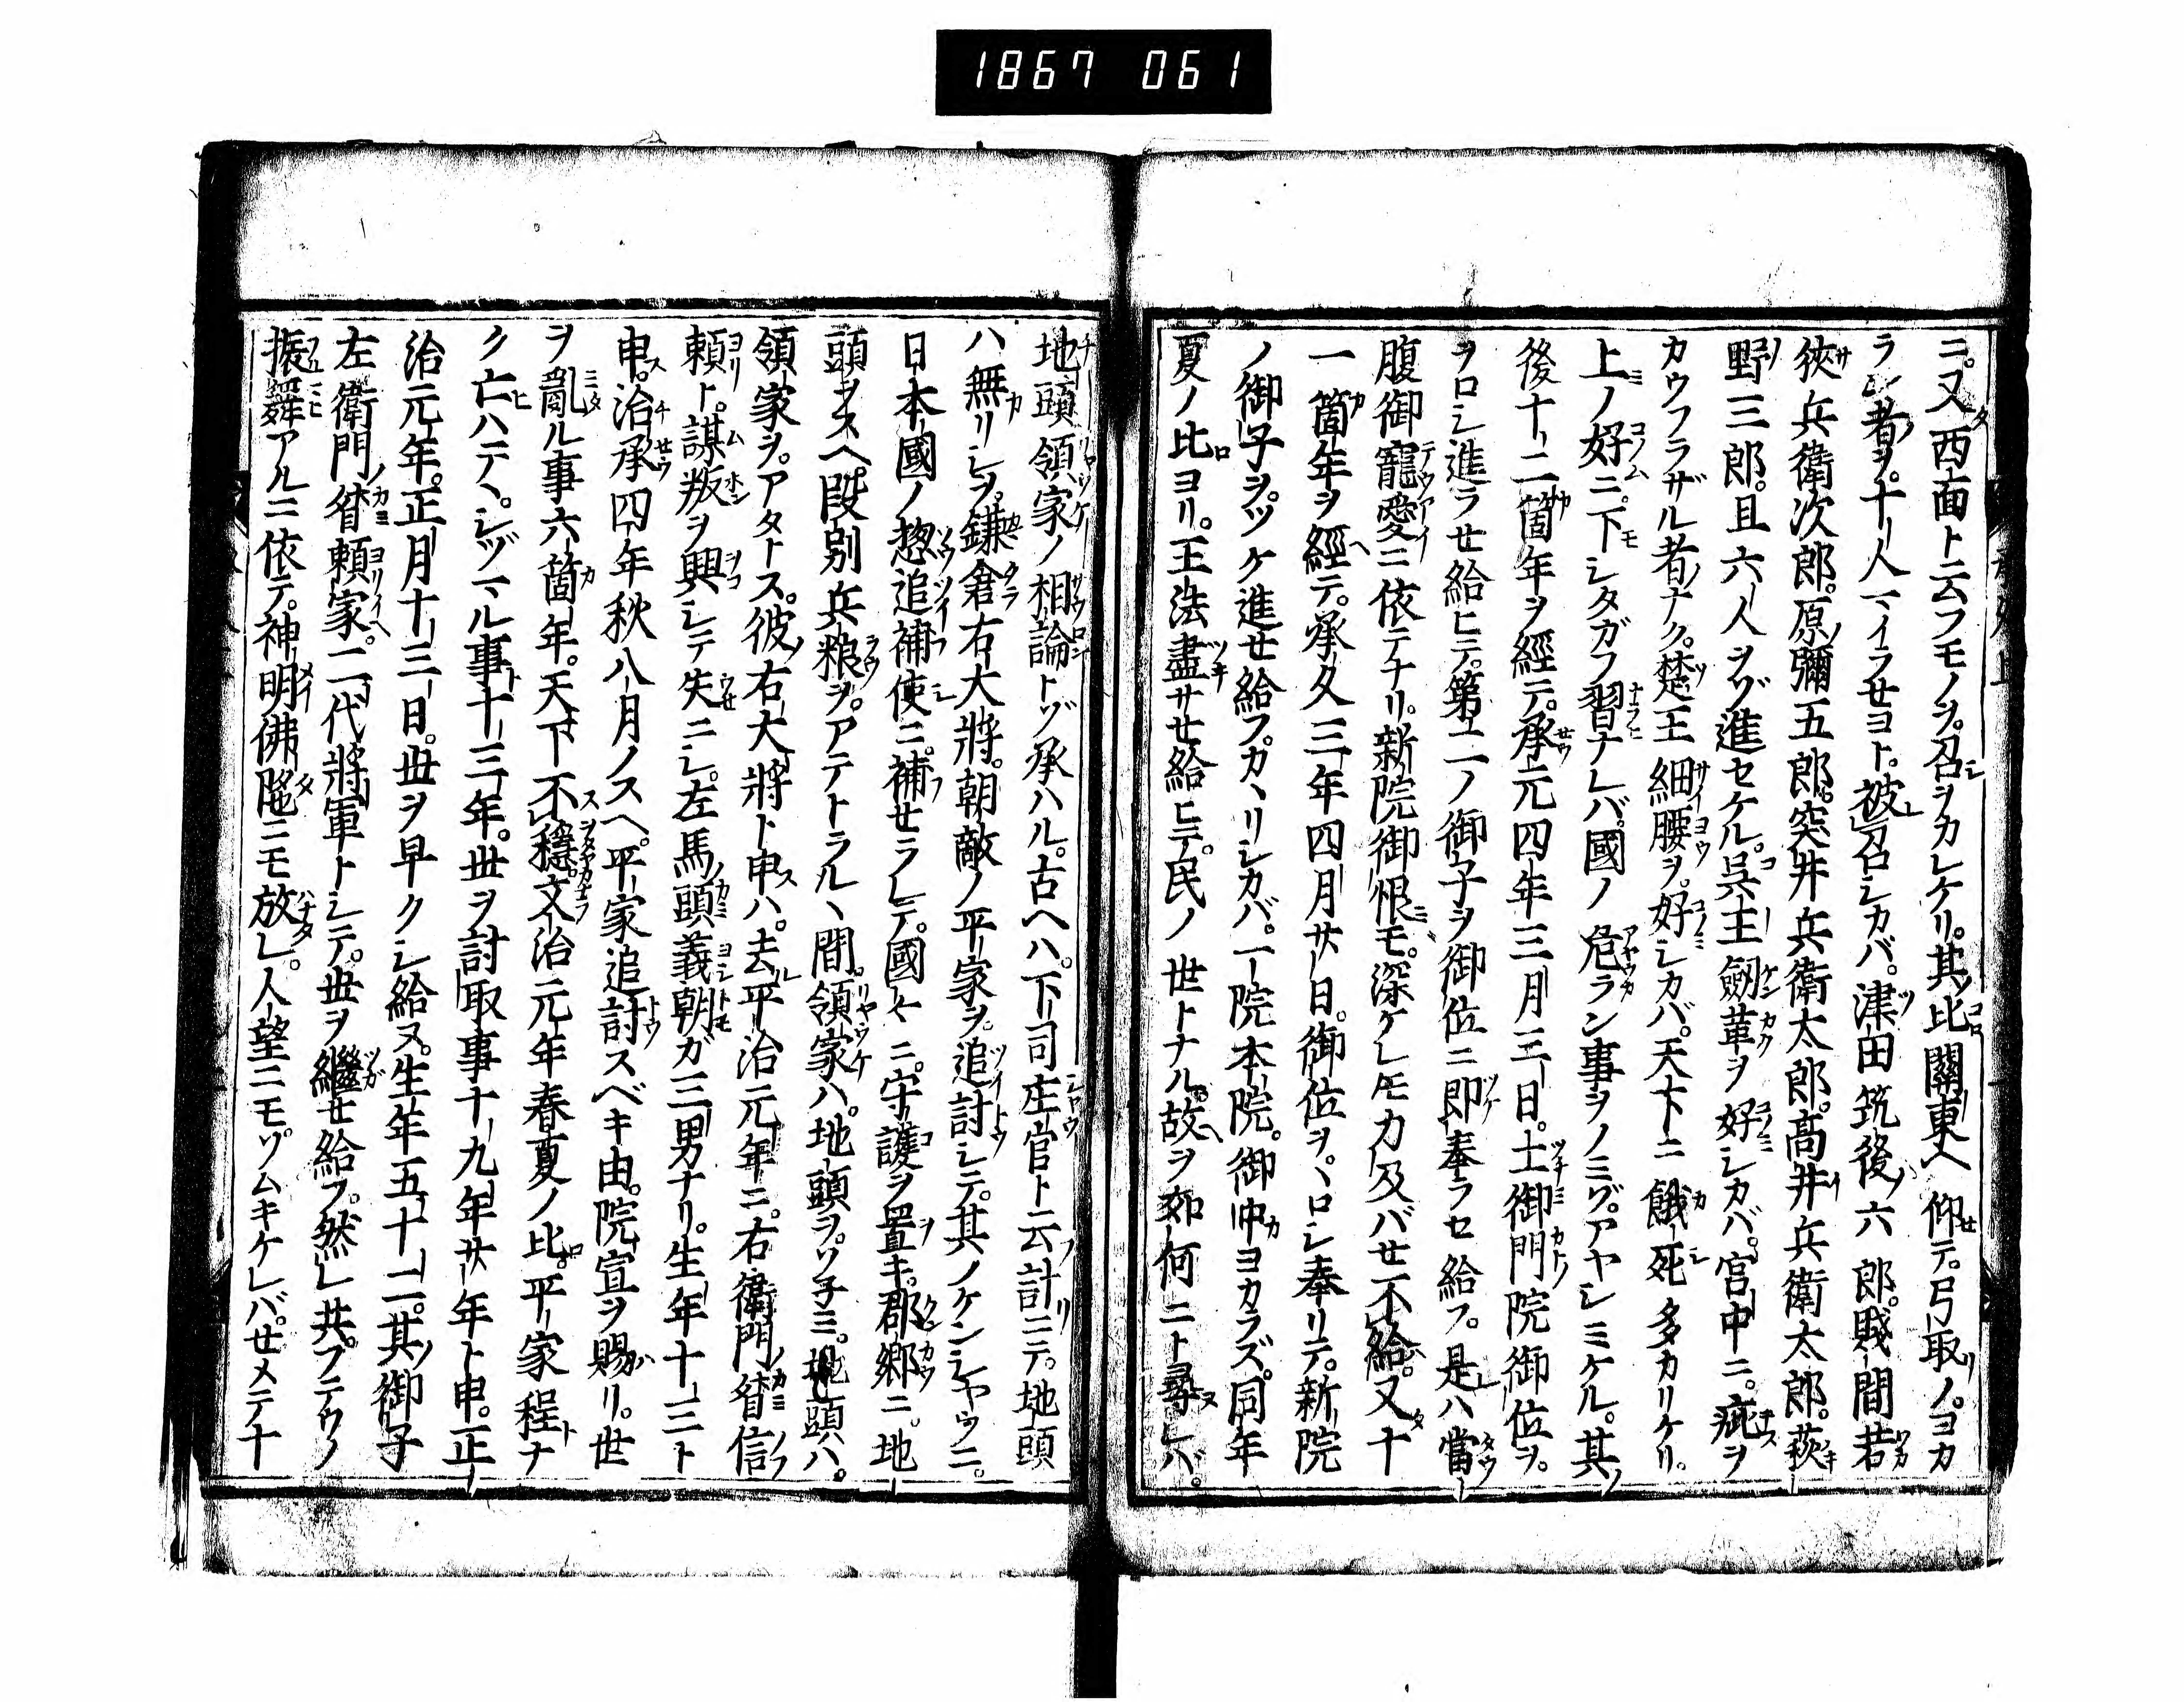 1867 061
ニ。又西面ト云フモノヲ。召ヲカレケリ。其比關東ヘ仰テ。弓取ノ。ヨカ
ラン者ヲ。十人マイラセヨト。被召シカバ。津田筑後六郎。賤間若
狹兵衛次郎。原彌五郎。突井兵衛太郎。髙井兵衛太郎。萩
野三郎。且六人ヲゾ進セケル。呉王劔革ヲ好シカバ。宮中ニ。疵ヲ
カウフラザル者ナク。楚王細腰ヲ。好シカバ。天下ニ餓死多カリケリ。
上ノ好ニ。下シタガフ習ナレバ。國ノ危ラン事ヲノミゾ。アヤシミケル。其
後十二箇年ヲ經テ。承元四年三月三日。土御門院御位ヲ。
ヲロシ進ラセ給ヒテ。第二ノ御子ヲ御位ニ即奉ラセ給フ。是ハ當
腹御寵愛ニ依テナリ。新院御恨モ。深ケレ𪜈力及バセ不給。又十
一箇年ヲ經テ。承久三年四月廿日。御位ヲ。ヽロシ奉リテ。新院
ノ御子ヲ。ツケ進セ給フ。カヽリシカバ。一院本院。御中ヨカラズ。同年
夏ノ比ヨリ。王法盡サセ給ヒテ。民ノ世トナル。故ヲ如何ニト尋レバ。
地頭領家ノ相論トゾ承ハル。古ヘハ。下司庄官ト云計ニテ。地頭
ハ無リシヲ。鎌倉右大將。朝敵ノ平家ヲ。追討シテ。其ノケンシヤウニ。
日本國ノ惣追補使ニ。補セラレテ。國々ニ。守護ヲ置キ。郡郷ニ。地
頭ヲスヘ。段別兵粮ヲ。アテトラルヽ間。領家ハ。地頭ヲ。ソ子ミ。地頭ハ。
領家ヲ。アタトス。彼右大將ト申ハ。去平治元年ニ。右衛門督信
頼ト。謀叛ヲ興シテ失ニシ。左馬頭義朝ガ三男ナリ。生年十三ト
申。治承四年秋八月ノスヘ。平家追討スベキ由。院宣ヲ賜リ。世
ヲ亂ル事六箇年。天下不穩。文治元年春夏ノ比。平家程ナ
ク亡ハテヽ。シヅマル事十三年。世ヲ討取事十九年廿年ト申。正
治元年。正月十三日。世ヲ早クシ給ヌ。生年五十二。其御子
左衛門督頼家。二代將軍トシテ。世ヲ繼セ給フ。然レ共。フテウノ
振舞アルニ依テ。神明佛陁ニモ放レ。人望ニモソムキケレバ。セメテ十